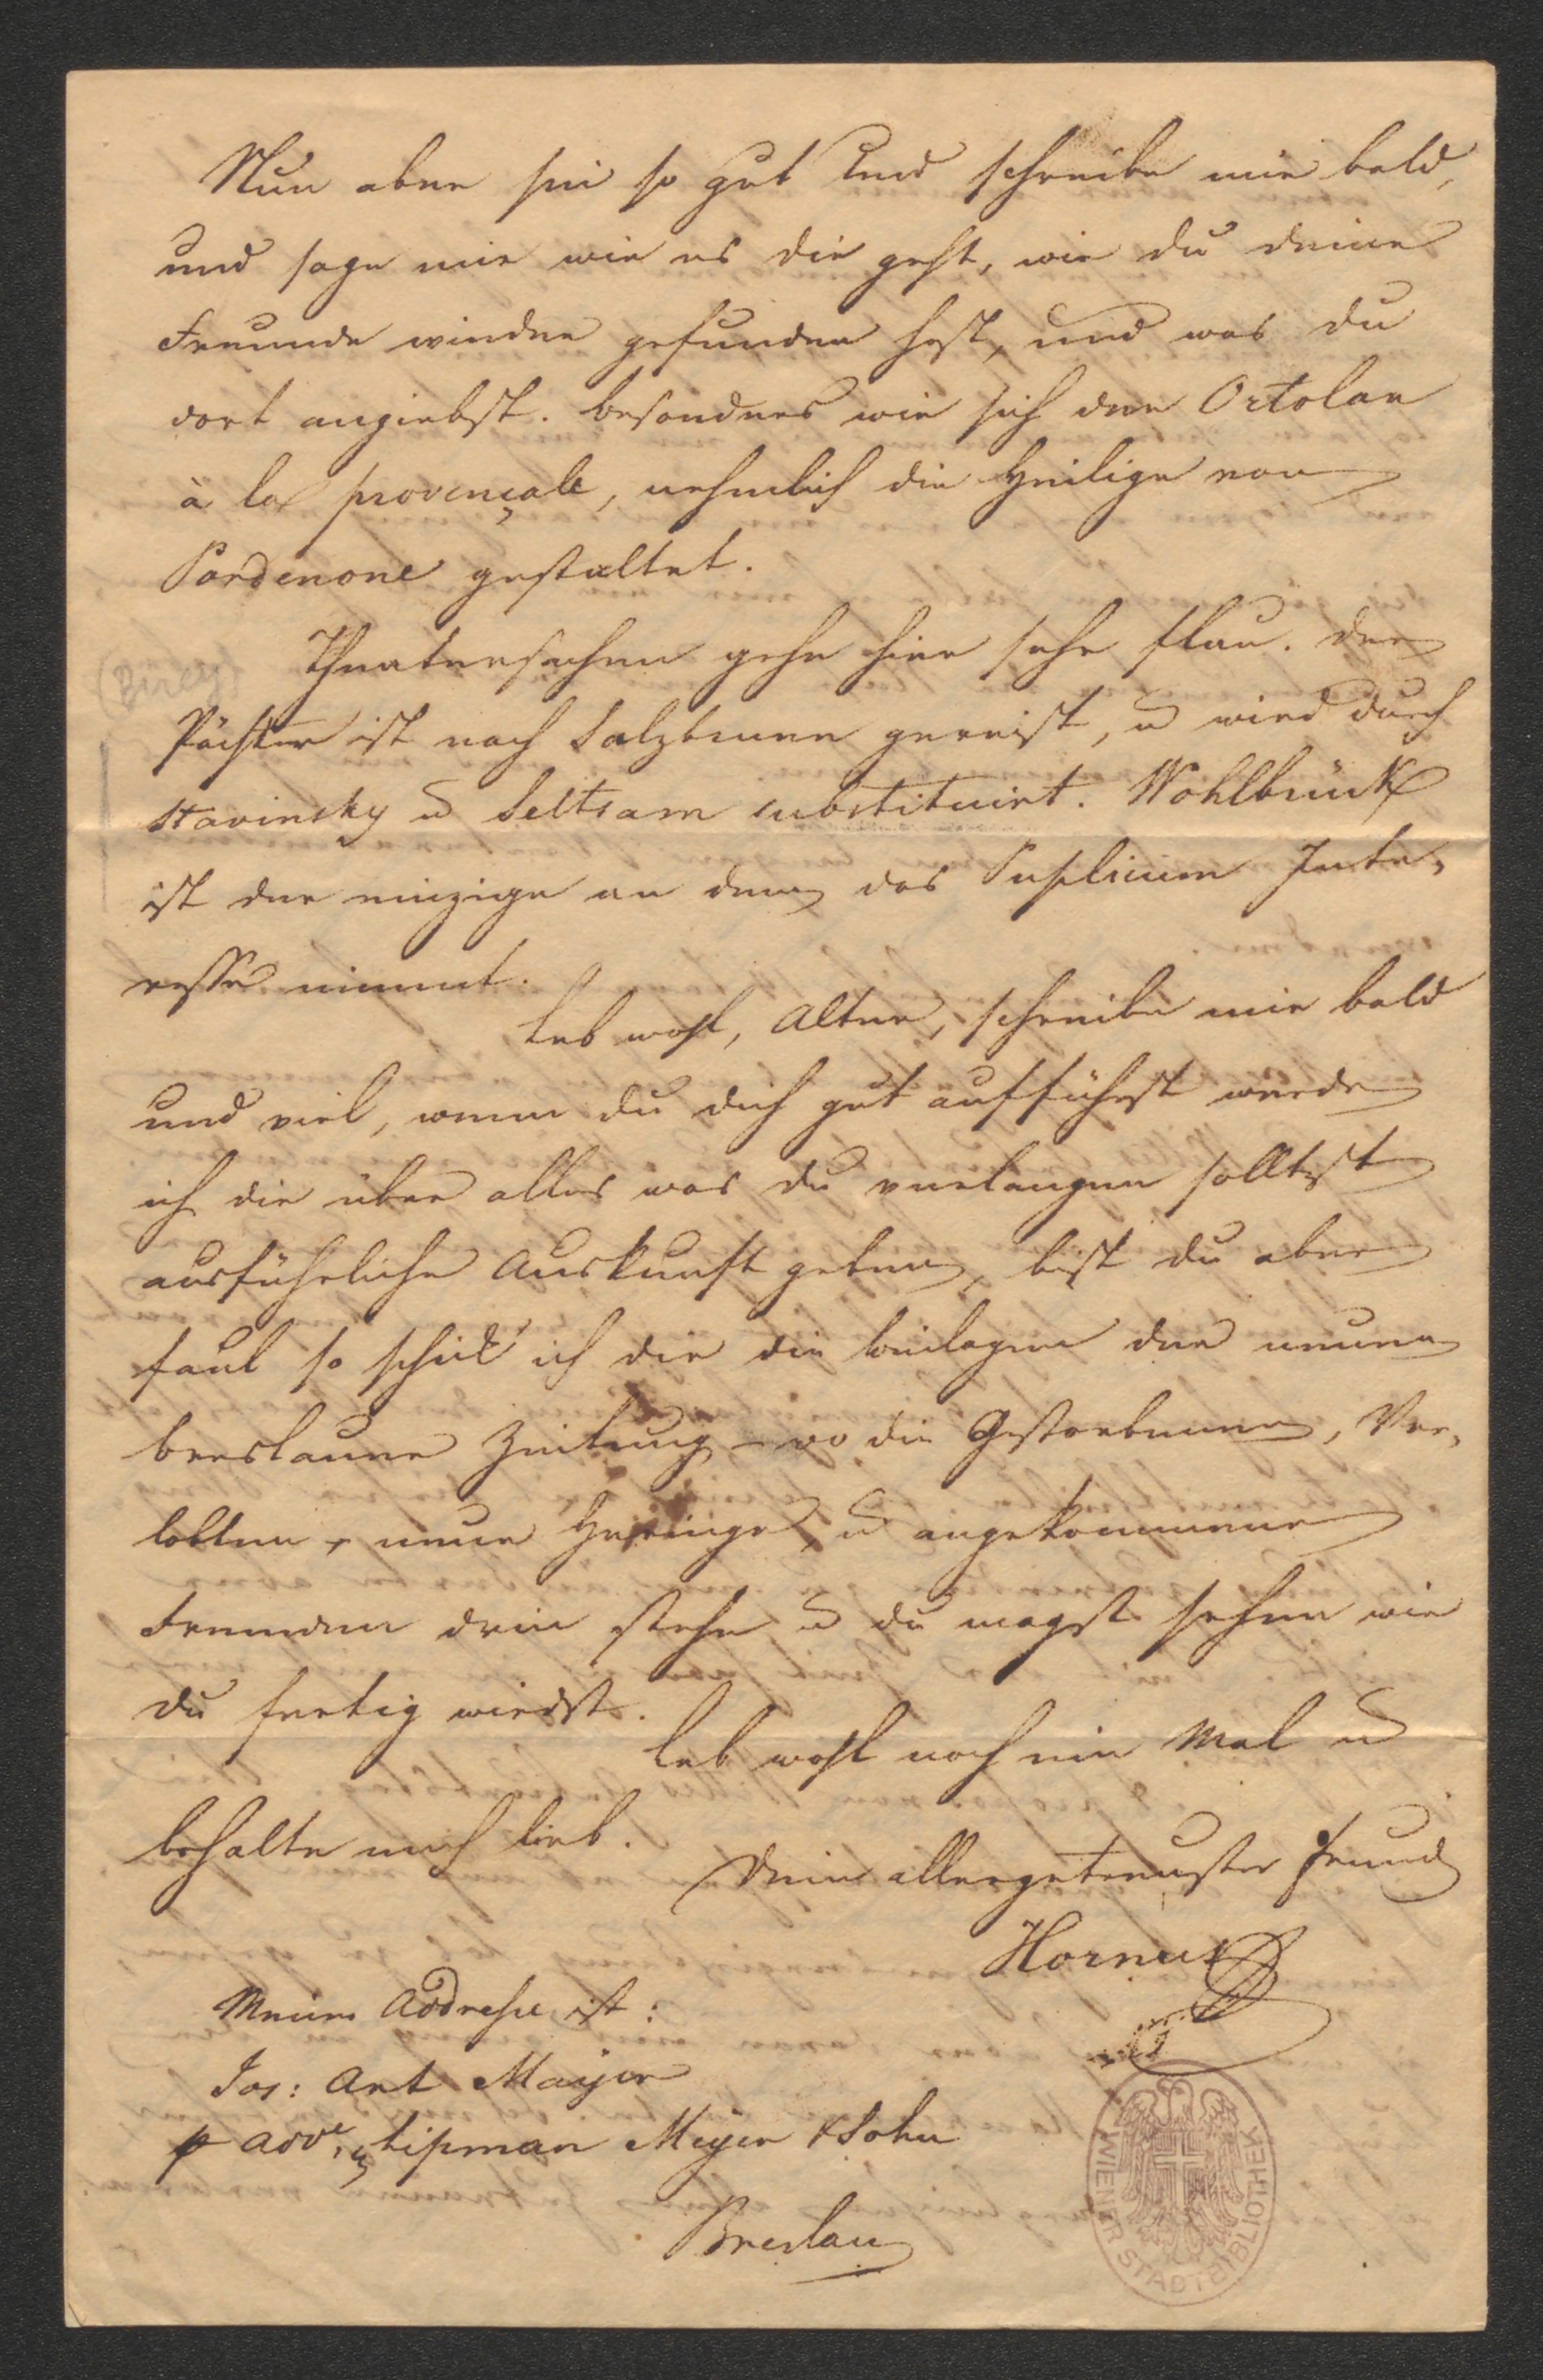 Nun aber sei so gut und schreibe mir bald,
und sage mir wie es dir geht, wie du deine
Freunde wieder gefunden hast, und was du
dort angiebst. besonders wie sich der Ortolan
à la provençale, nehmlich die Heilige von
Pordenone gestaltet.
Theatersachen gehn hier sehr flau. der
(Bircy)
Pächter ist nach Salzbrunn gereist, u wird durch
Stavinsky u Seltsam substituirt. Wohlbrück
ist der einzige an dem das Puplicum Inte,
resse nimmt.
Leb wohl, Alter, schreibe mir bald
und viel, wenn du dich gut aufführst werde
ich dir über alles was du verlangen solltest
ausführliche Auskunft geben, bist du aber
faul so schick' ich dir die beilagen der neuen
breslauer Zeitung – wo die Gestorbenen, Ver,
lobten, neue Heringe, u angekommene
Fremden drin stehn u du magst sehen wie
du fertig wirdst.
Leb wohl noch ein Mal u
behalte mich lieb.
Dein allergetreuster Freund
Hornus
Meine Addresse ist:
Jos: Ant Mayer
p addr, Lipman Meyer & Sohn
Breslau
WIENER STADTBIBLIOTHEK